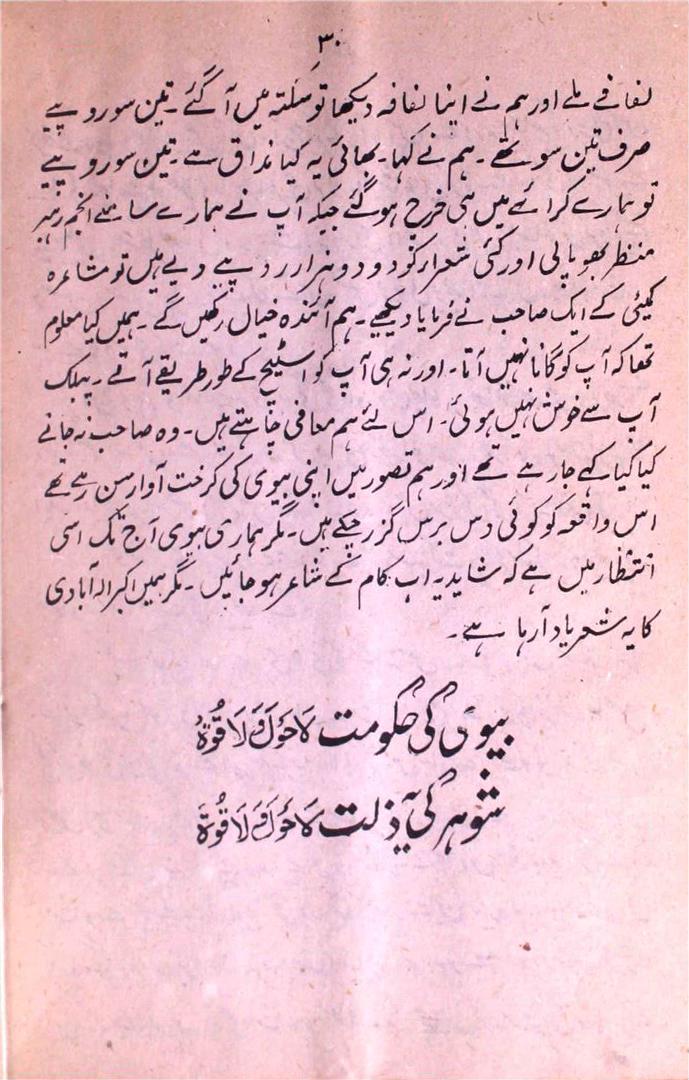 ۳۰
لفافے ملے اور ہم نے اپنا لفافہ دیکھا تو سکتہ میں آ گئے۔ تین سو روپیے
صرف تین سو تھے۔ ہم نے کہا۔ بھائی یہ کیا مذاق ہے۔ تین سو روپیے
تو ہمارے کرائے میں ہی خرچ ہو گئے جبکہ آپ نے ہمارے سامنے انجم رہبر
منظر بھوپالی اور کئی شعراء کو دو دو ہزار روپیے دیے ہیں تو مشاعرہ
کمیٹی کے ایک صاحب نے فرمایا دیکھیے۔ ہم آئندہ خیال رکھیں گے۔ ہمیں کیا معلوم
تھا کہ آپ کو گانا نہیں آتا۔ اور نہ ہی آپ کو اسٹیج کے طور طریقے آتے۔ پبلک
آپ سے خوش نہیں ہوئی۔ اس لئے ہم معافی چاہتے ہیں۔ وہ صاحب نہ جانے
کیا کیا کہے جا رہے تھے اور ہم تصور میں اپنی بیوی کی کرخت آواز سن رہے تھے
اس واقعہ کو کوئی دس برس گزر چکے ہیں۔ مگر ہماری بیوی آج تک اسی
انتظار میں ہے کہ شاید یہ اب کام کے شاعر ہو جائیں۔ مگر ہمیں اکبر الہ آبادی
کا یہ شعر یاد آ رہا ہے۔
بیوی کی حکومت لَاحَوْلَ وَلَا قُوَّۃُ
شوہر کی یہ ذلت لَاحَوْلَ وَلَا قُوَّۃَ